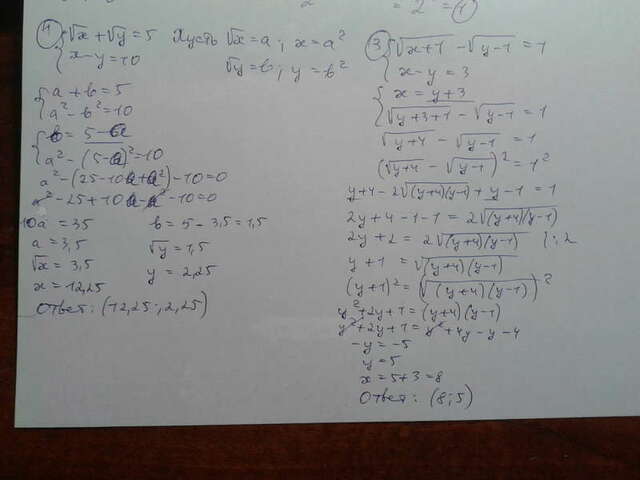 2 = 2 = 1
4) { √x + √y = 5 Пусть √x = a ; x = a²
x - y = 10 √y = b ; y = b²
{ a + b = 5
a² - b² = 10
{ b = 5 - a
a² - (5 - a)² = 10
a² - (25 - 10a + a²) - 10 = 0
a² - 25 + 10a - a² - 10 = 0
10a = 35 b = 5 - 3,5 = 1,5
a = 3,5 √y = 1,5
√x = 3,5 y = 2,25
x = 12,25
Ответ: (12,25 ; 2,25)
3) { √x+1 - √y-1 = 1
x - y = 3
{ x = y + 3
√y+3+1 - √y-1 = 1
√y+4 - √y-1 = 1
(√y+4 - √y-1)² = 1²
y+4 - 2√(y+4)(y-1) + y - 1 = 1
2y + 4 - 1 - 1 = 2√(y+4)(y-1)
2y + 2 = 2√(y+4)(y-1) |: 2
y + 1 = √(y+4)(y-1)
(y+1)² = (√(y+4)(y-1))²
y² + 2y + 1 = (y+4)(y-1)
y² + 2y + 1 = y² + 4y - y - 4
-y = -5
y = 5
x = 5 + 3 = 8
Ответ: (8 ; 5)